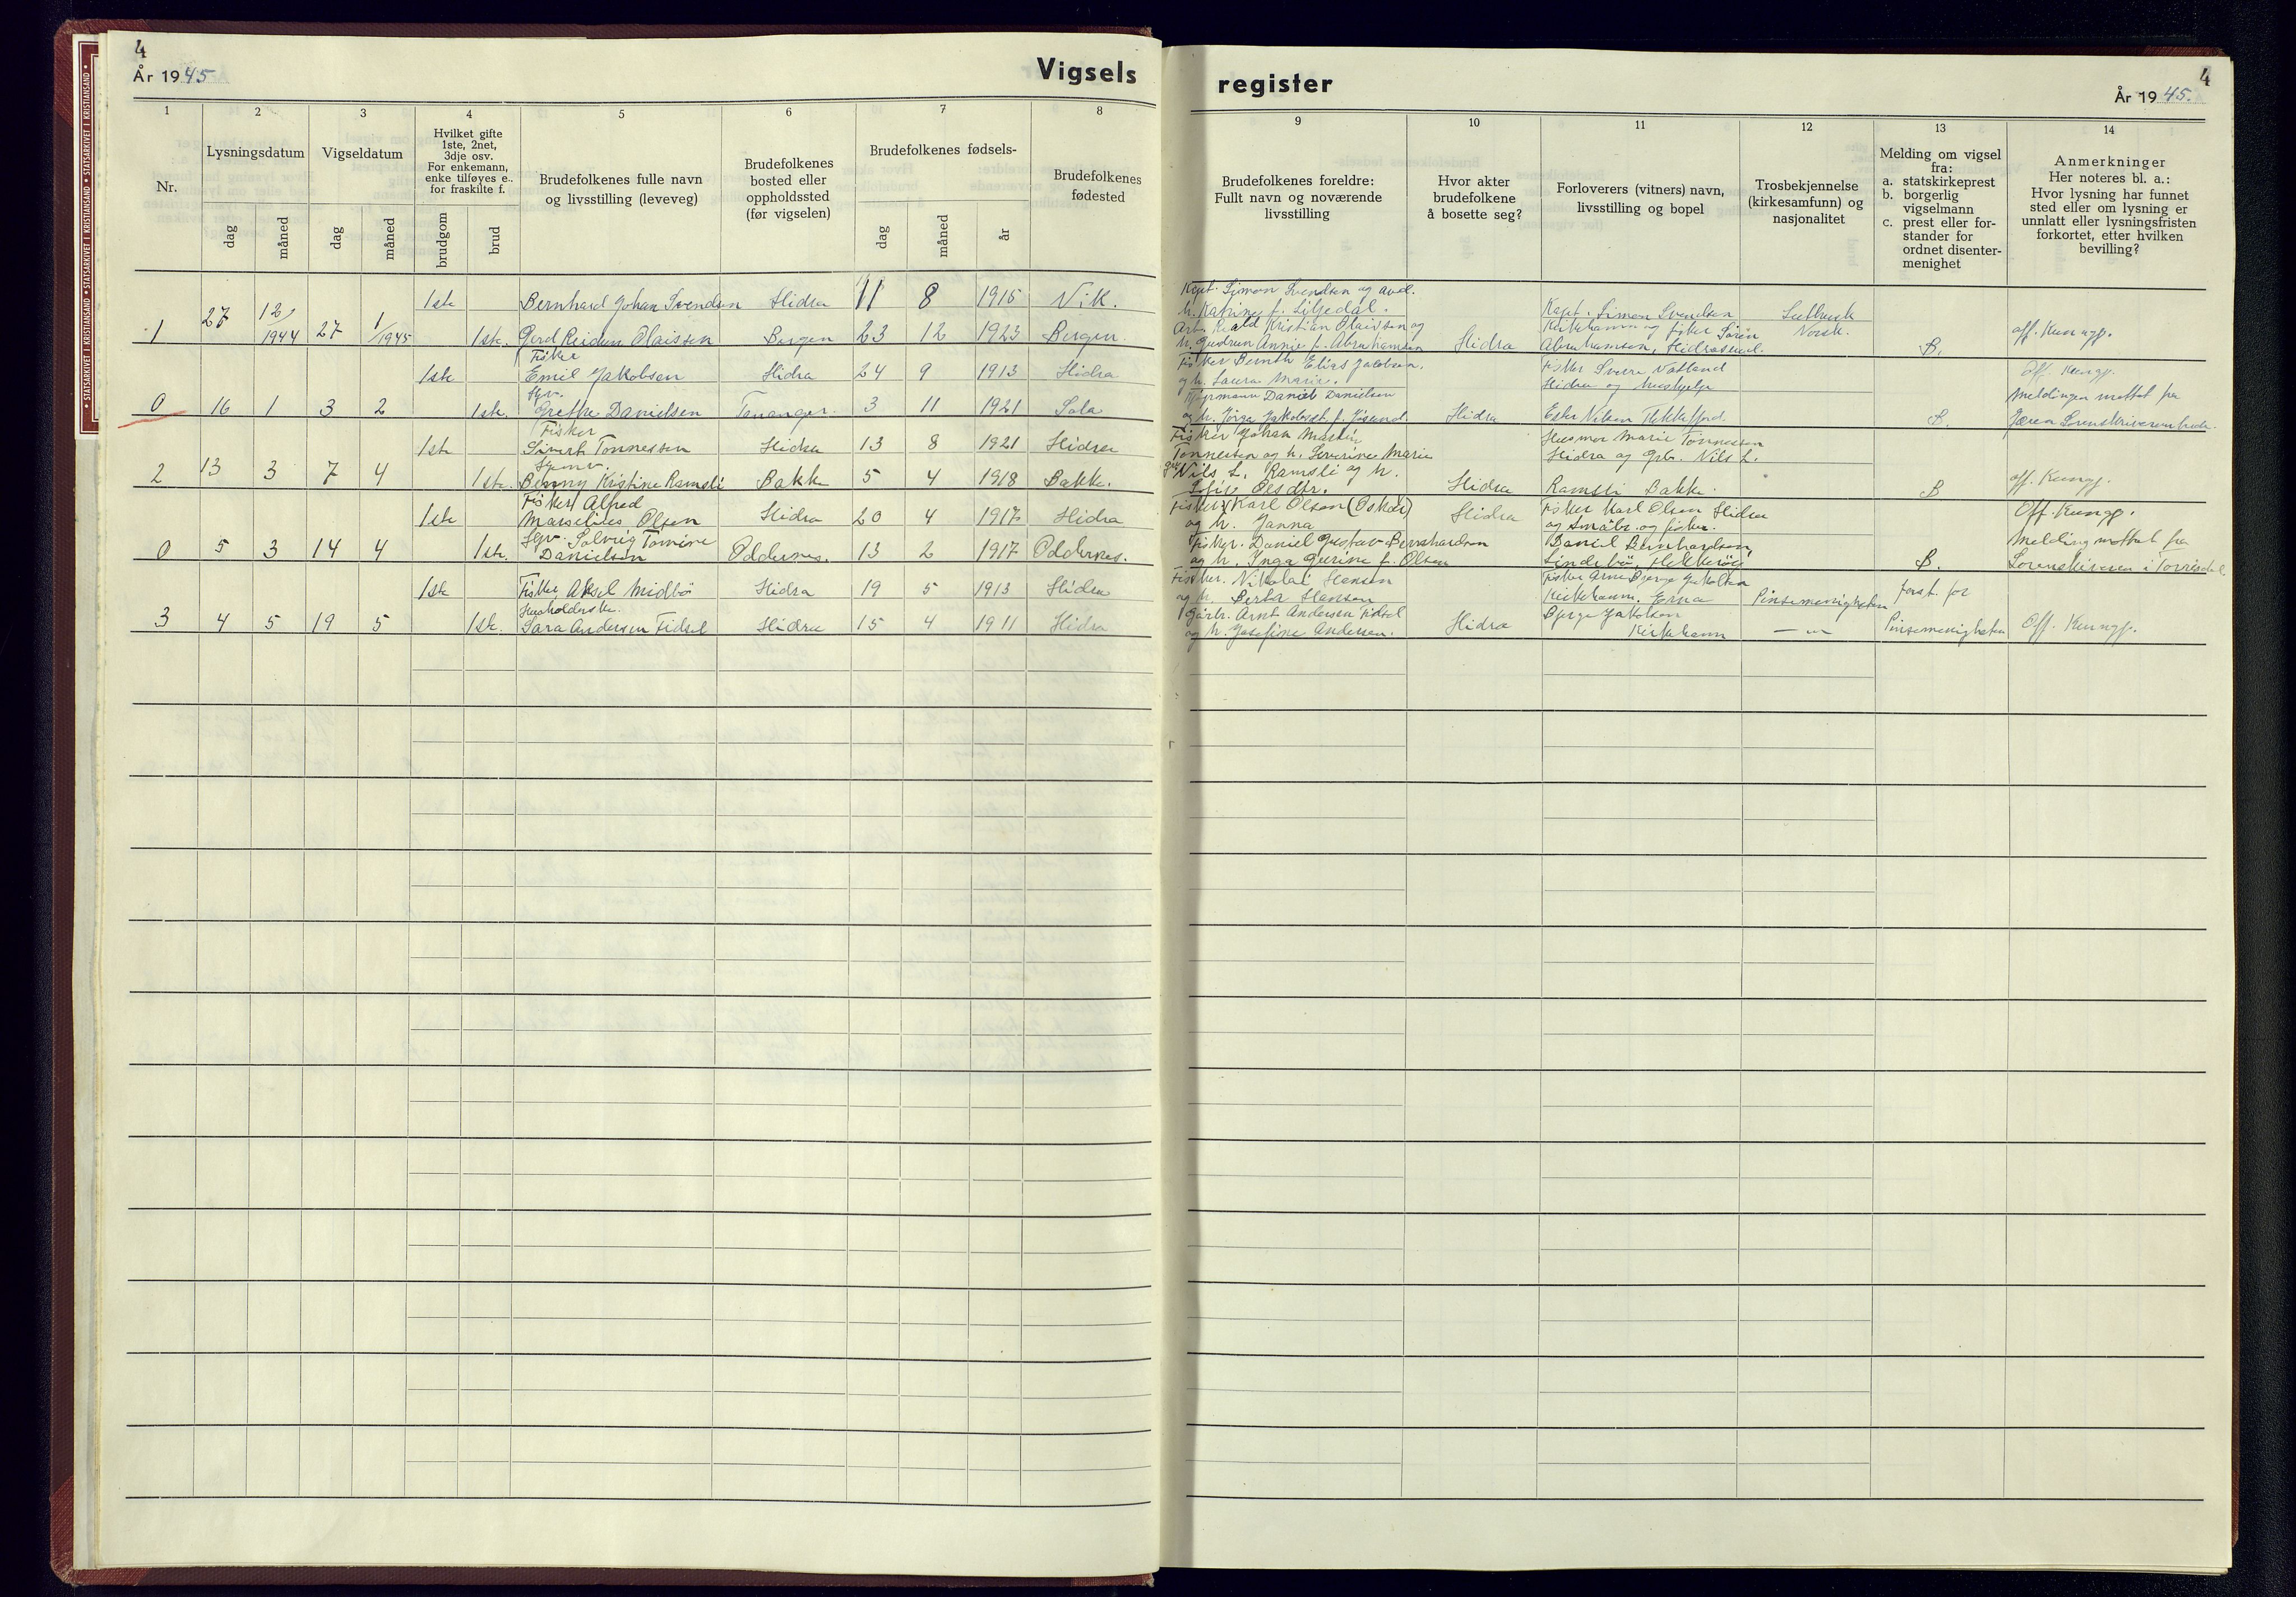 4
År 1945
Vigsels
register
4
År 1945.
STATSARKIVET I KRISTIANSAND • STATSARKIVET I KRISTIANSAND • STATSARKIVET I KRISTIANSAND
1 2 3 4 5 6 7 8 9 10 11 12 13 14
Nr.
Lysningsdatum
dag
måned
Vigseldatum
dag
måned
Hvilket gifte
1ste, 2net,
3dje osv.
For enkemann,
enke tilføyes e..
for fraskilte f.
brudgom
brud
Brudefolkenes fulle navn
og livsstilling (leveveg)
Brudefolkenes
bosted eller
oppholdssted
(før vigselen)
Brudefolkenes fødsels-
dag
måned
år
Brudefolkenes
fødested
Brudefolkenes foreldre:
Fullt navn og noværende
livsstilling
Hvor akter
brudefolkene
å bosette seg?
Forloverers (vitners) navn,
livsstilling og bopel
Trosbekjennelse
(kirkesamfunn) og
nasjonalitet
Melding om vigsel
fra:
a. statskirkeprest
b. borgerlig
vigselmann
c. prest eller for-
stander for
ordnet disenter-
menighet
Anmerkninger
Her noteres bl. a.:
Hvor lysning har funnet
sted eller om lysning er
unnlatt eller lysningsfristen
forkortet, etter hvilken
bevilling?
1ste Bernhard Johan Svendsen Hidra 11 8 1915 Vik.
Kapt. Simon Svendsen og avd.
h. Katrine f. Liljedal.
1 27 12/1944 27 1/1945 1ste. Gerd Reidun Olaissen Bergen 23 12 1923 Bergen.
Kristian Olaissen og
h. Gudrun Annie f. Abrahamsen
Hidra
Kapt. Simon Svendsen
Kirkhamn og fisker Sørin
Abrahamsen, Hidrasund.
Luthersk
Norsk.
B.
off. Kunngj.
Fisker
1ste Emil Jakobsen Hidra 24 9 1913 Hidra
Fisker Bernth Elias Jakobsen,
og h. Laura Marie.
Hgv.
0 16 1 3 2 1ste. Grethe Danielsen Tananger. 3 11 1921 Sola
Daniel Danielsen
Hidra
Fisker Sverre Natland
Hidra og hushjelp
Ester Nilsen Flekkefjord.
B.
Off. Kunngj.
Meldingen mottat fra
Jæren Sorenskriverembede.
Fisker
1ste Sivert Tønnessen Hidra 13 8 1921 Hidra
Fisker Johan Martin
Tønnessen og h. Severine Marie
2 13 3 7 4 1ste. Benny Kristine Ramsli Bakke 5 4 1918 Bakke.
Nils L. Ramsli og h.
Sofie Olsdtr.
Hidra
Husmor Marie Tønnessen
Hidra og Grb. Nils L.
Ramsli Bakke.
B
off. Kunngj.
Fisker Alfred
1ste Marselius Olsen Hidra 20 4 1917 Hidra
Fisker Karl Olsen (Oskar)
og h. Janna
Hidra
Hgv. Solveig Tomine
0 5 3 14 4 1ste. Danielsen Oddernes. 13 2 1917 Oddernes.
Fisker. Daniel Gustav Bernhardsen
og h. Inga Gurine f. Olsen
Fisker Karl Olsen Hidra
og småbr. og fisker.
Daniel Bernhardsen,
Lindebø, Flekkerøy
B.
Off. Kunngj.
Melding mottat fra
Sorenskriveren i Torridal
1ste Fisker Aksel Midbø Hidra 19 5 1913 Hidra
Fisker. Nikolai Hansen
og h. Berta Hansen
Husholderske.
3 4 5 19 5 1ste. Sara Andersen Fidsel Hidra 15 4 1911 Hidra
Gårbr. Arnt Andersen Fidsel
og h. Josefine Andersen.
Hidra
Fisker Arne Bjerge Jakobsen
Kirkhamn. Erna
Bjerge Jakobsen
Kirkhamn
Pinsemenigheten
— „ —
Forst. for
Pinsemenigheten
Off. Kunngj.